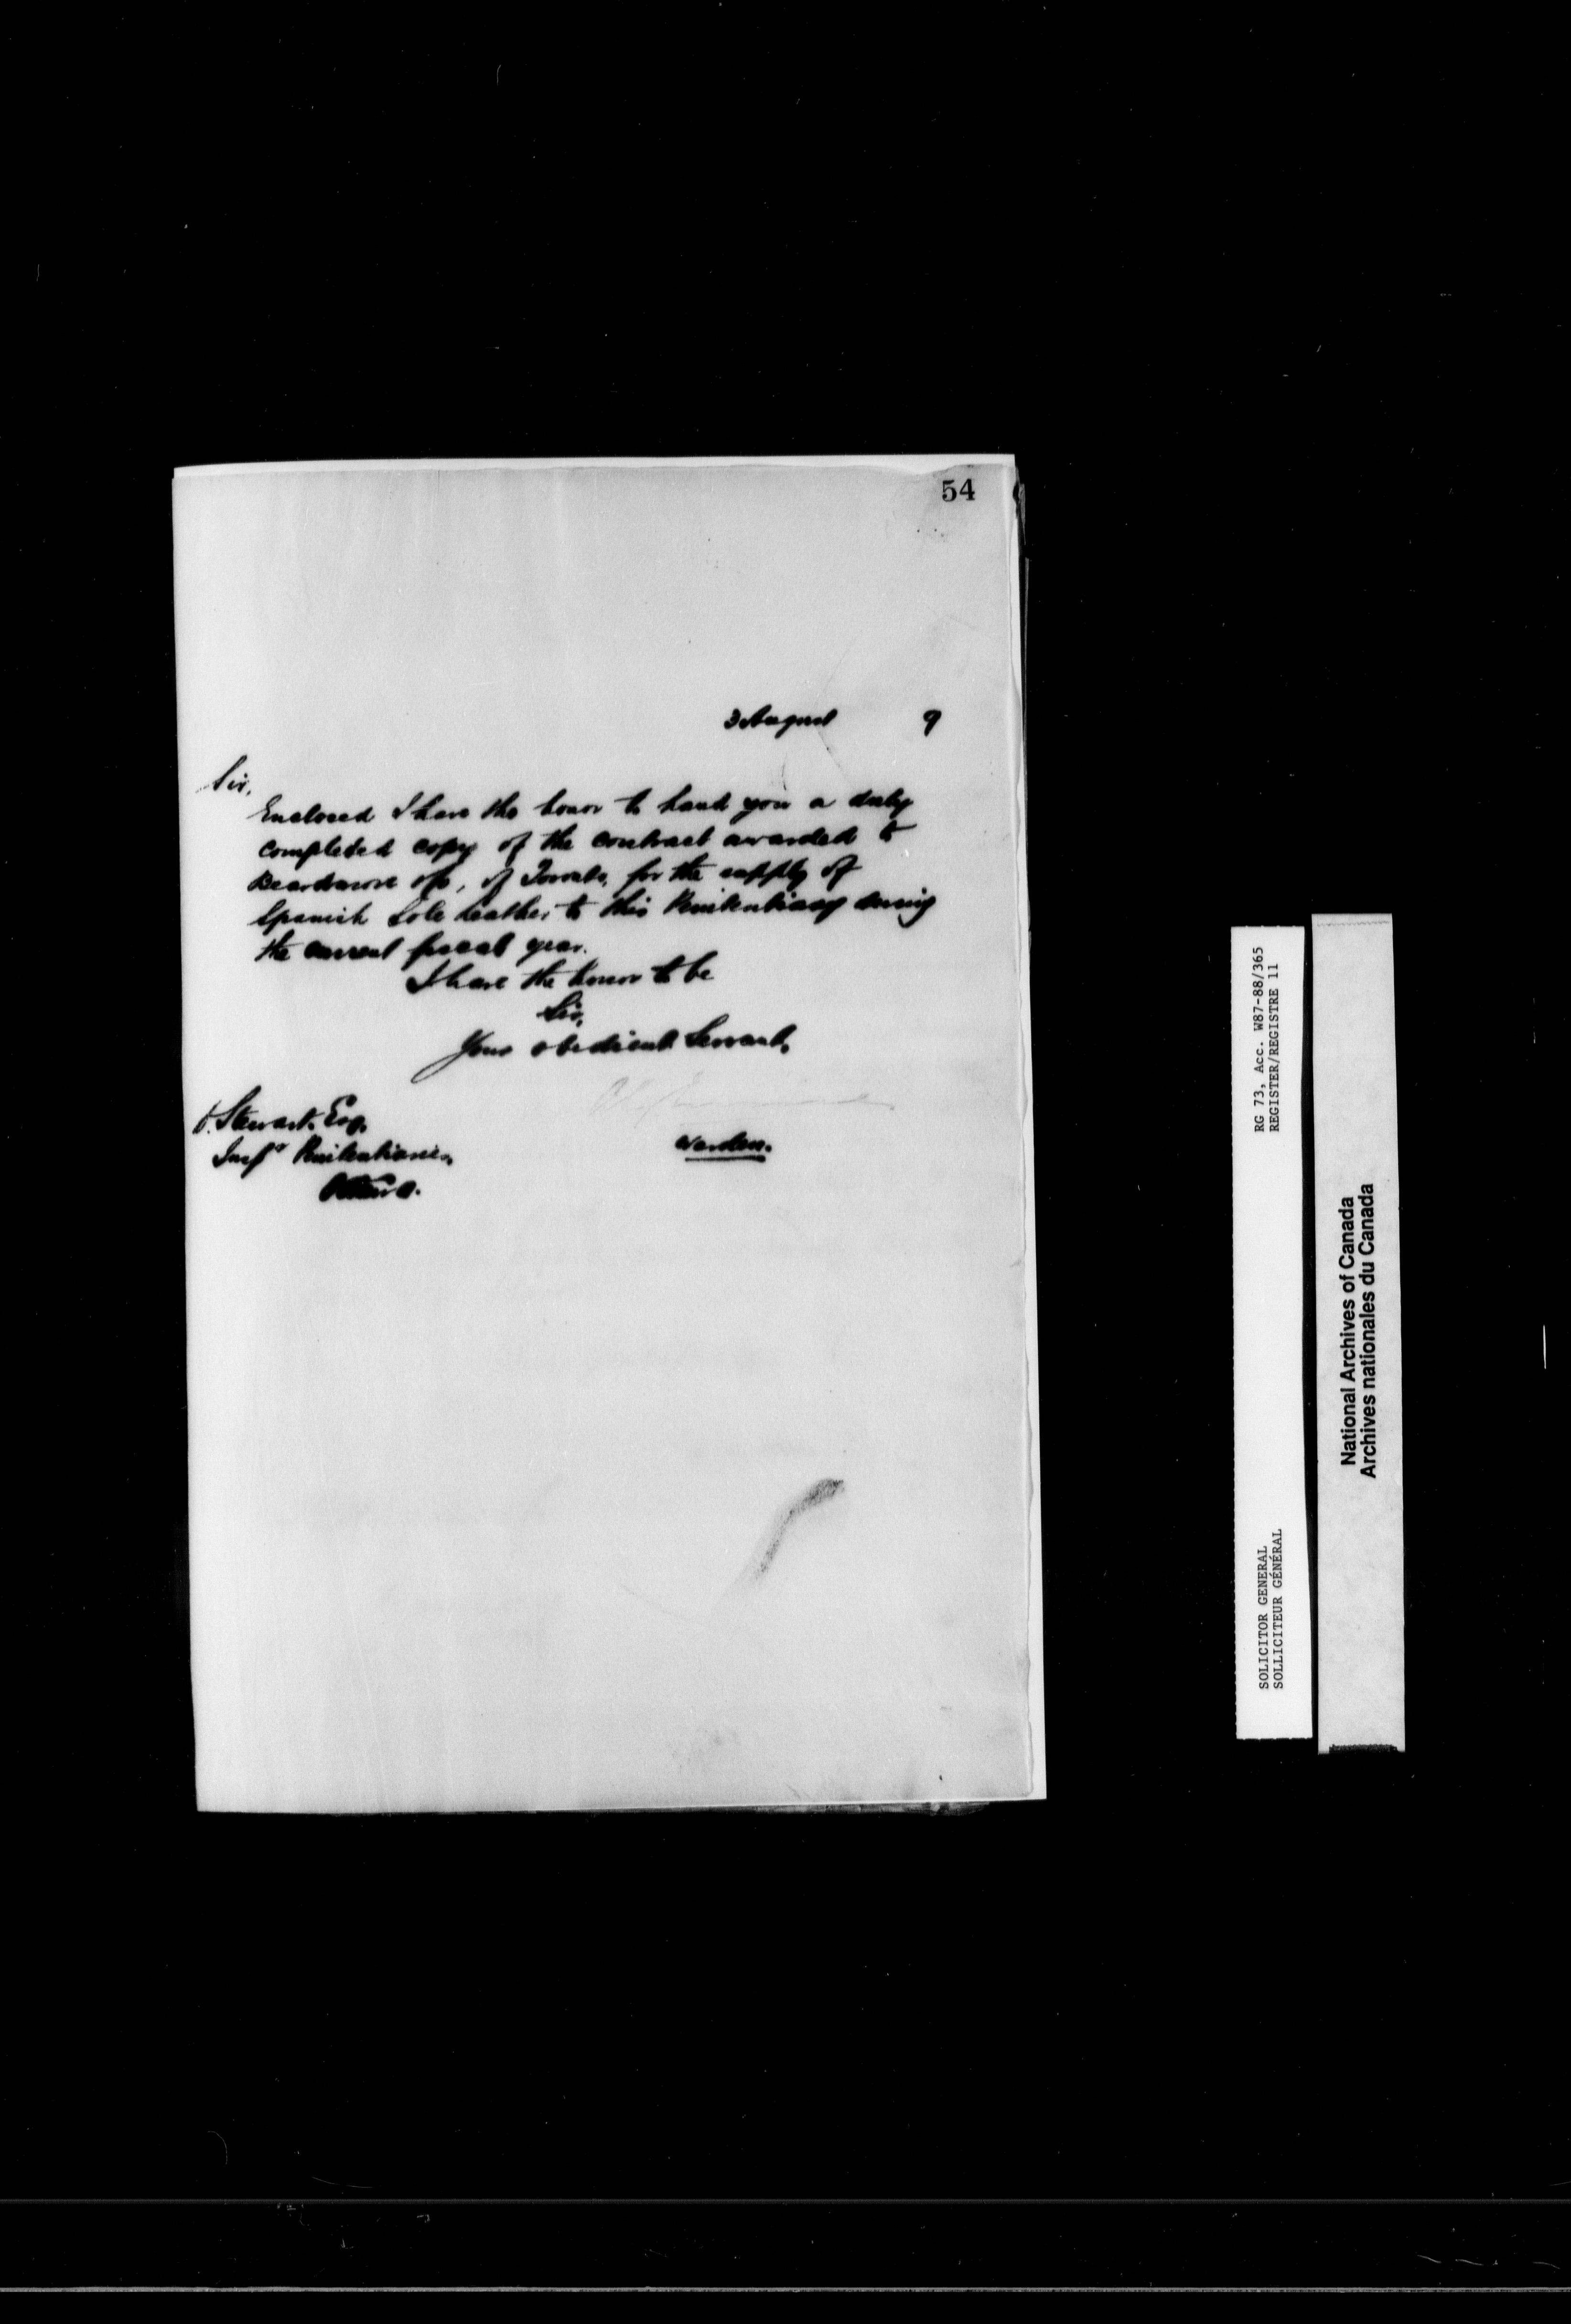 54
3 August 9
Sir,
Enclosed I have the honor to hand you a duly
completed copy of the contract awarded to
Beardmore & Co, of Toronto, for the supply of
Spanish Sole Leather to this Penitentiary during
the current fiscal year.
I have the honor to be
Sir,
Your obedient Servant,
Stewart Esq,
Inspr Penitentiaries,
Ottawa.
Warden.
RG 73, Acc. W87-88/365
REGISTER/REGISTRE 11
SOLICITOR GENERAL
SOLLICITEUR GÉNÉRAL
National Archives of Canada
Archives nationales du Canada